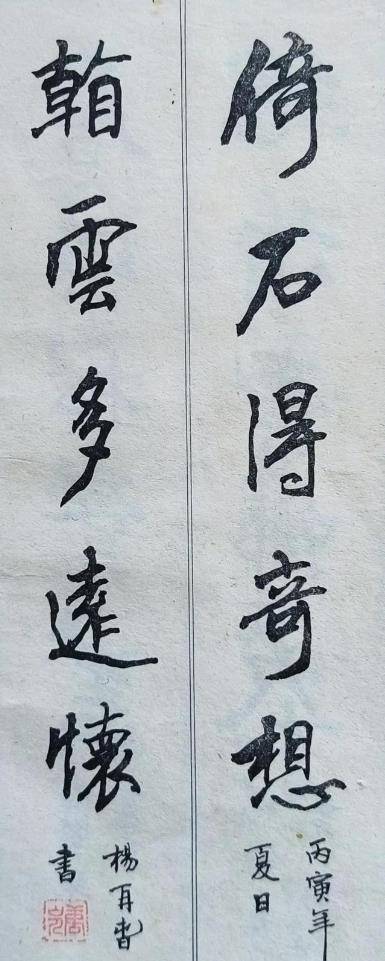 倚石得奇想
丙寅年
夏日
雲多遠懷
楊再春
書